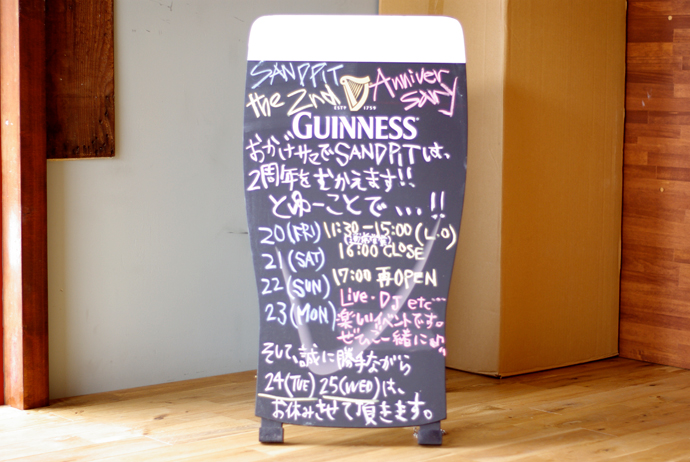 SANDPIT Anniver
the 2nd sary
ESTD 1759
GUINNESS
おかげサマでSANDPITは、
2周年をむかえます!!
とゆーことで、、、!!
20(FRI) 11:30-15:00(L.O)
21(SAT) 16:00 CLOSE
22(SUN) 17:00 再OPEN
23(MON) Live・DJ etc…
楽しいイベントです。
ぜひご一緒に♪
そして、誠に勝手ながら
24(TUE) 25(WED)は、
お休みさせて頂きます。